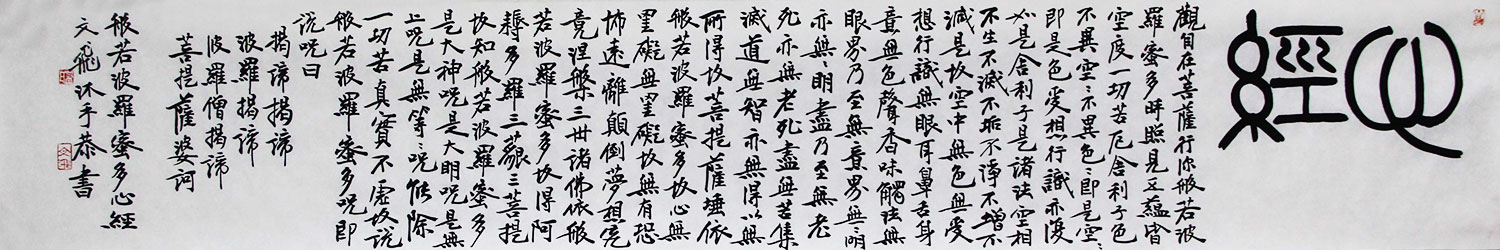 心經
觀自在菩薩行深般若波
羅蜜多時照見五蘊皆
空度一切苦厄舍利子色
不異空〻不異色〻即是空〻
即是色受想行識亦復
如是舍利子是諸法空相
不生不滅不垢不淨不增不
減是故空中無色無受
想行識無眼耳鼻舌身
意無色聲香味觸法無
眼界乃至無意界無〻明
亦無〻明盡乃至無老
死亦無老死盡無苦集
滅道無智亦無得以無
所得故菩提薩埵依
般若波羅蜜多故心無
罣礙無罣礙故無有恐
怖遠離顛倒夢想究
竟涅槃三世諸佛依般
若波羅蜜多故得阿
耨多羅三藐三菩提
故知般若波羅蜜多
是大神呪是大明呪是無
上呪是無等〻呪能除
一切苦真實不虛故說
般若波羅蜜多呪即
說呪曰
揭諦揭諦
波羅揭諦
波羅僧揭諦
菩提薩婆訶
般若波羅蜜多心經
文飛沐手恭書